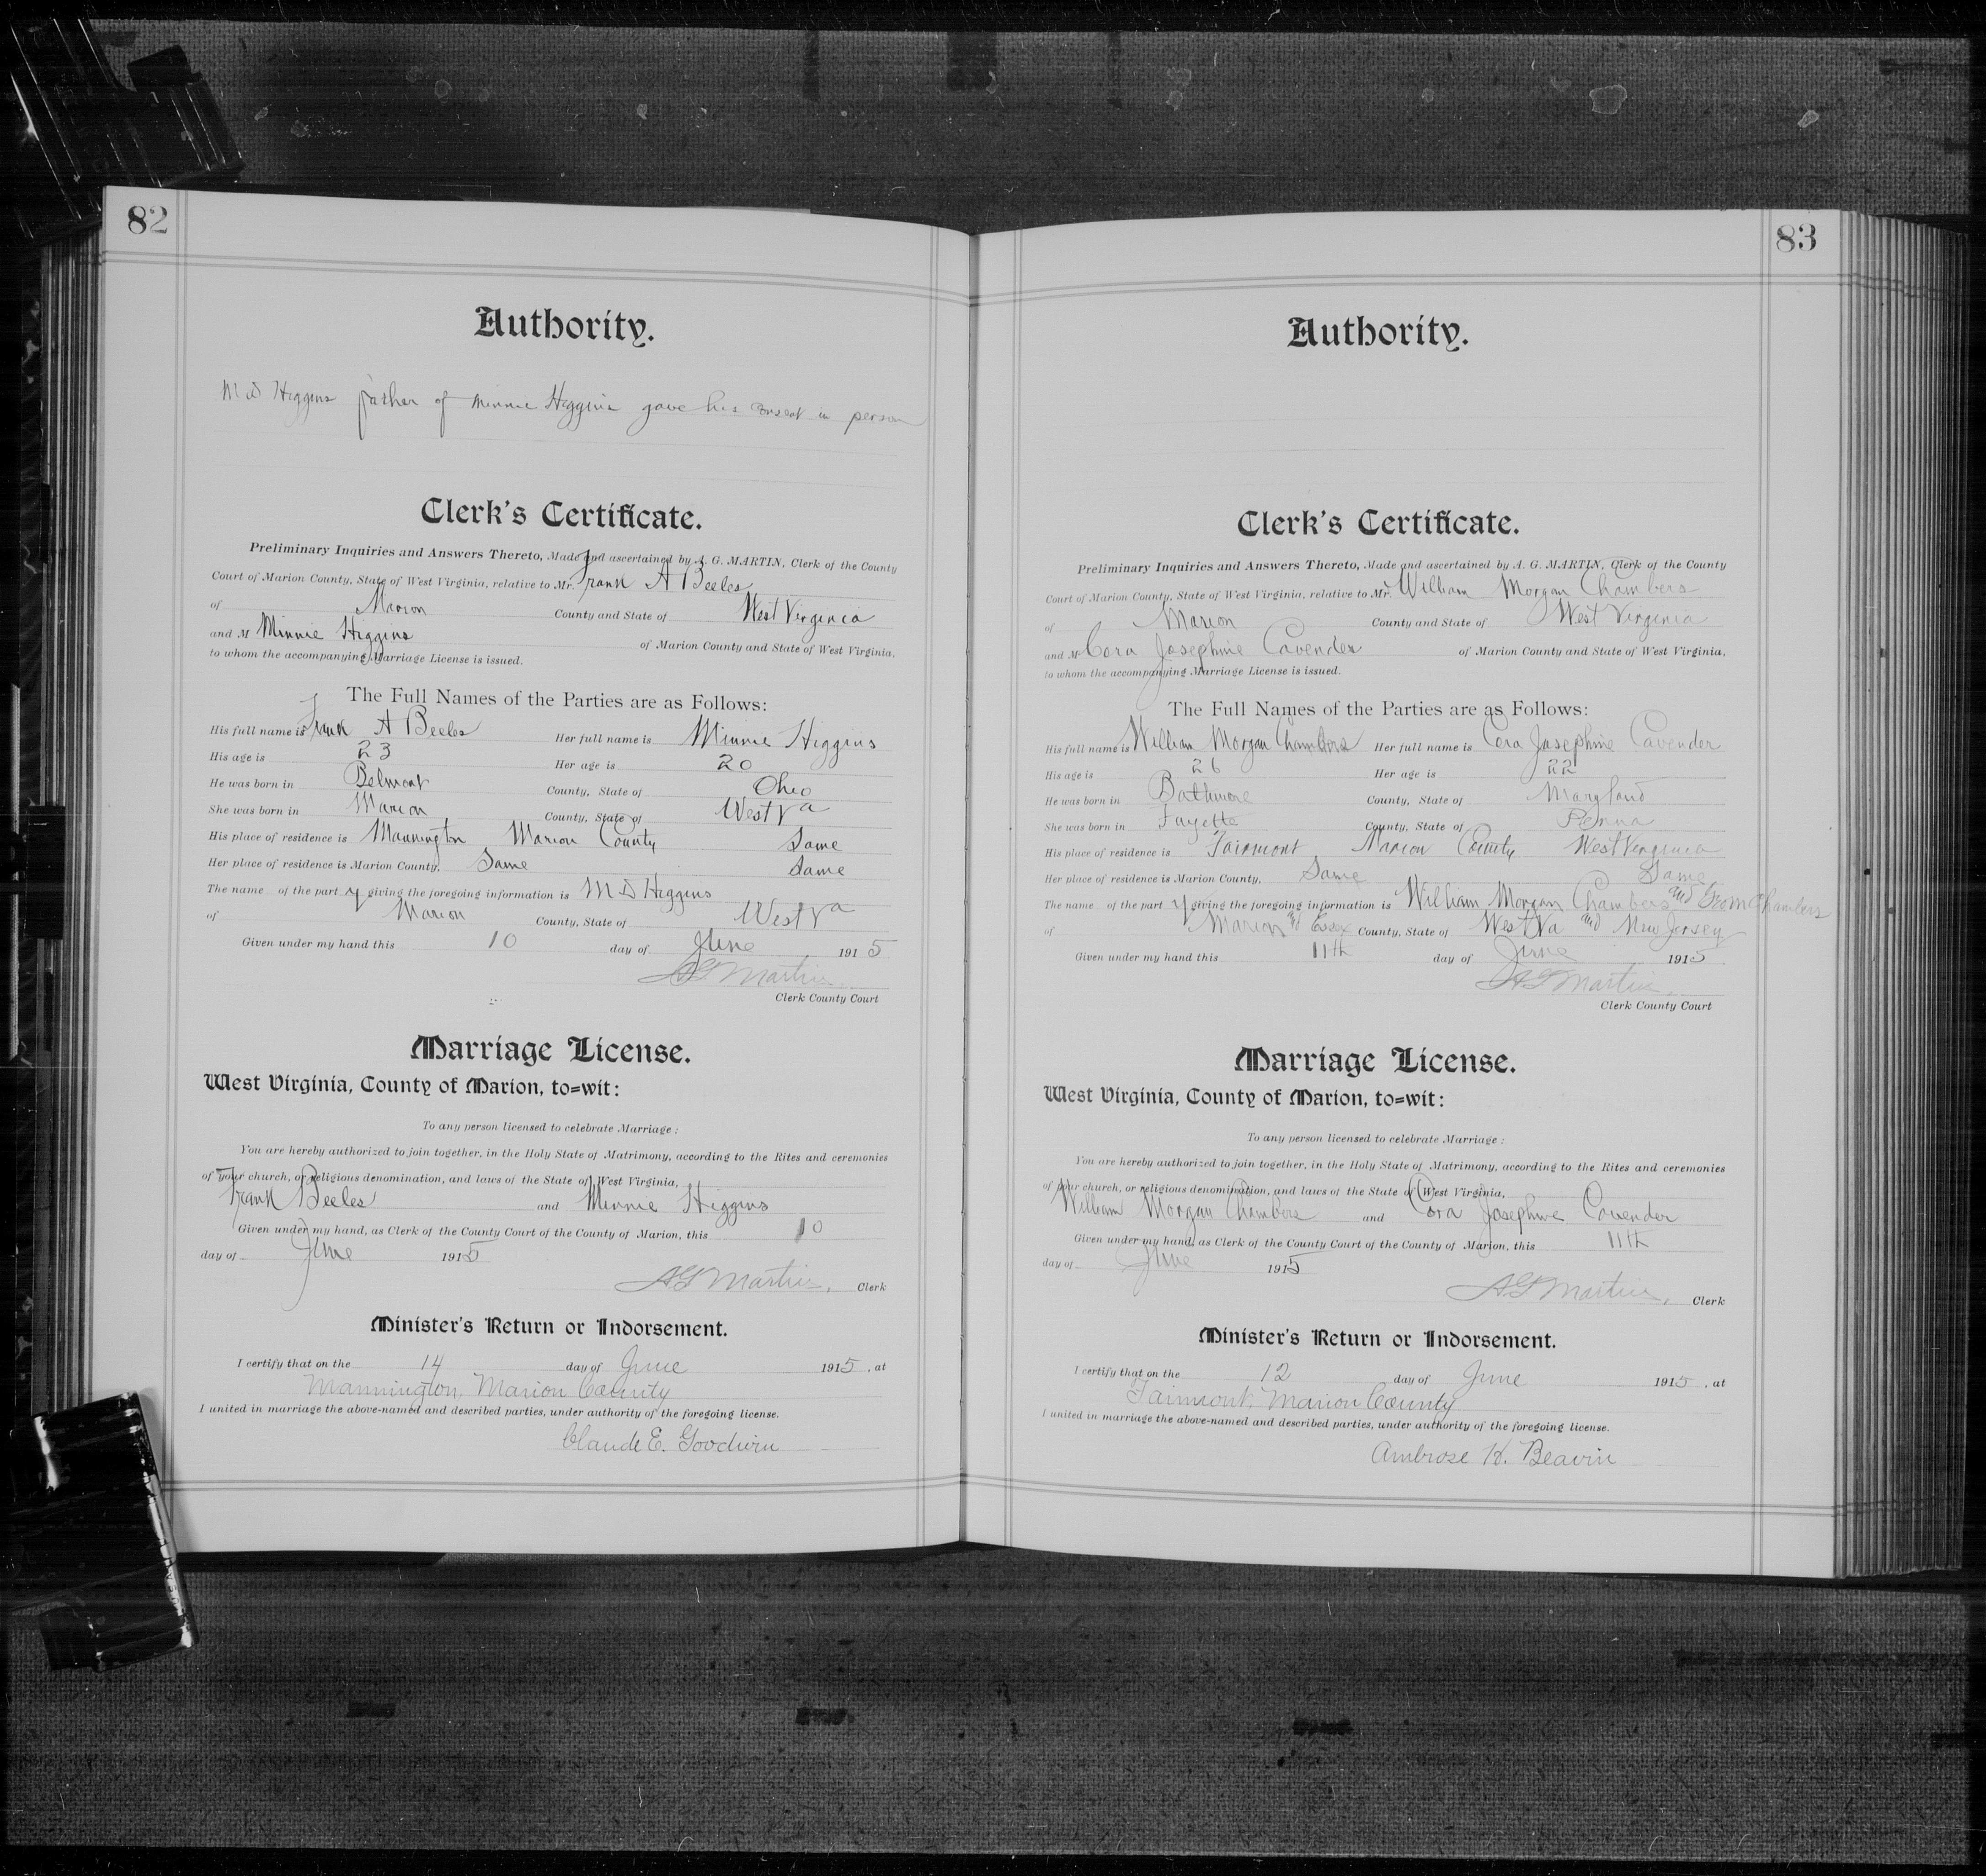 82
Authority.
M D Higgins father of Minnie Higgins gave his consent in person
Clerk's Certificate.
Preliminary Inquiries and Answers Thereto, Made and ascertained by A. G. MARTIN, Clerk of the County
Court of Marion County, State of West Virginia, relative to Mr. Frank A Beeles
of Marion County and State of West Virginia
and M Minnie Higgins of Marion County and State of West Virginia,
to whom the accompanying Marriage License is issued.
The Full Names of the Parties are as Follows:
His full name is Frank A Beeles Her full name is Minnie Higgins
His age is 23 Her age is 20
He was born in Belmont County, State of Ohio
She was born in Marion County, State of West Va
His place of residence is Mannington Marion County Same
Her place of residence is Marion County, Same Same
The name of the part y giving the foregoing information is M D Higgins
of Marion County, State of West Va
Given under my hand this 10 day of June 1915
A G Martin
Clerk County Court
Marriage License.
West Virginia, County of Marion, to=wit:
To any person licensed to celebrate Marriage:
You are hereby authorized to join together, in the Holy State of Matrimony, according to the Rites and ceremonies
of your church, or religious denomination, and laws of the State of West Virginia,
Frank Beeles and Minnie Higgins
Given under my hand, as Clerk of the County Court of the County of Marion, this 10
day of June 1915
A G Martin, Clerk
Minister's Return or Indorsement.
I certify that on the 14 day of June 1915, at
Mannington Marion County
I united in marriage the above-named and described parties, under authority of the foregoing license.
Claude E. Goodwin
83
Authority.
Clerk's Certificate.
Preliminary Inquiries and Answers Thereto, Made and ascertained by A. G. MARTIN, Clerk of the County
Court of Marion County, State of West Virginia, relative to Mr. William Morgan Chambers
of Marion County and State of West Virginia
and M Cora Josephine Cavender of Marion County and State of West Virginia,
to whom the accompanying Marriage License is issued.
The Full Names of the Parties are as Follows:
His full name is William Morgan Chambers Her full name is Cora Josephine Cavender
His age is 26 Her age is 22
He was born in Baltimore County, State of Maryland
She was born in Fayette County, State of Penna
His place of residence is Fairmont Marion County West Virginia
Her place of residence is Marion County, Same Same
The name of the part y giving the foregoing information is William Morgan Chambers and Geo M Chambers
of Marion and Essex County, State of West Va and New Jersey
Given under my hand this 11th day of June 1915
A G Martin,
Clerk County Court
Marriage License.
West Virginia, County of Marion, to=wit:
To any person licensed to celebrate Marriage:
You are hereby authorized to join together, in the Holy State of Matrimony, according to the Rites and ceremonies
of your church, or religious denomination, and laws of the State of West Virginia,
William Morgan Chambers and Cora Josephine Cavender
Given under my hand, as Clerk of the County Court of the County of Marion, this 11th
day of June 1915
A G Martin, Clerk
Minister's Return or Indorsement.
I certify that on the 12 day of June 1915, at
Fairmont, Marion County
I united in marriage the above-named and described parties, under authority of the foregoing license.
Ambrose K. Beavin